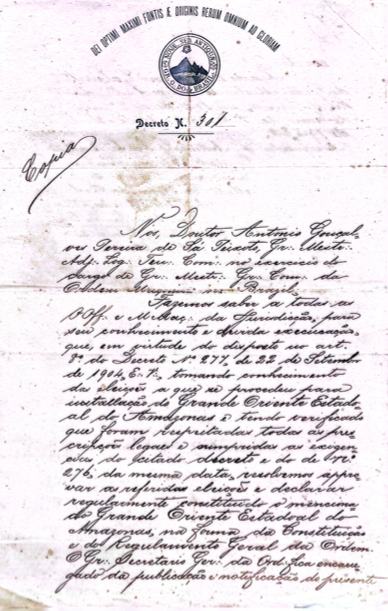 DEI OPTIMI MAXIMI FONTIS Æ ORIGINIS RERUM OMNIUM AD GLORIAM
G. O. DO BRASIL
Decreto N. 301
Copia
Nós, Doutor Antonio Gonçal-
ves Pereira de Sá Peixoto, Gr∴ Mestr∴
Adj∴ Log∴ Ten∴ Com∴ no exercicio do
cargo de Gr∴ Mestr∴ Gr∴ Com∴ da
Ordem no Brazil.
Fazemos saber a todas as
Off∴ e MMaç∴ da Jurisdicção, para
seu conhecimento e devida execução,
que, em virtude do disposto no art.
9º do Decreto Nº 277, de 22 de Setembro
de 1904, E∴ V∴, tomando conhecimento
da eleição a que se procedeu para
installação do Grande Oriente Estado-
al do Amazonas e tendo verificado
que foram respeitadas todas as pres-
cripções legaes e cumpridas as exigen-
cias do citado decreto e do de Nº
276, da mesma data, resolvemos appro-
var a referida eleição e declarar
regularmente constituido o menciona-
do Grande Oriente Estadoal do
Amazonas, na forma da Constituição
e do Regulamento Geral da Ordem.
O Gr∴ Secretario Ger∴ da Ord∴ fica encarre-
gado da publicação e notificação do presente